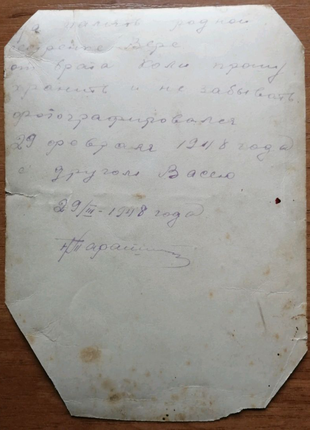 память родной
от брата Коли прошу
хранить и не забывать
фотографировался
29 февраля 1948 года
с другом Васею
29/III-1948 года